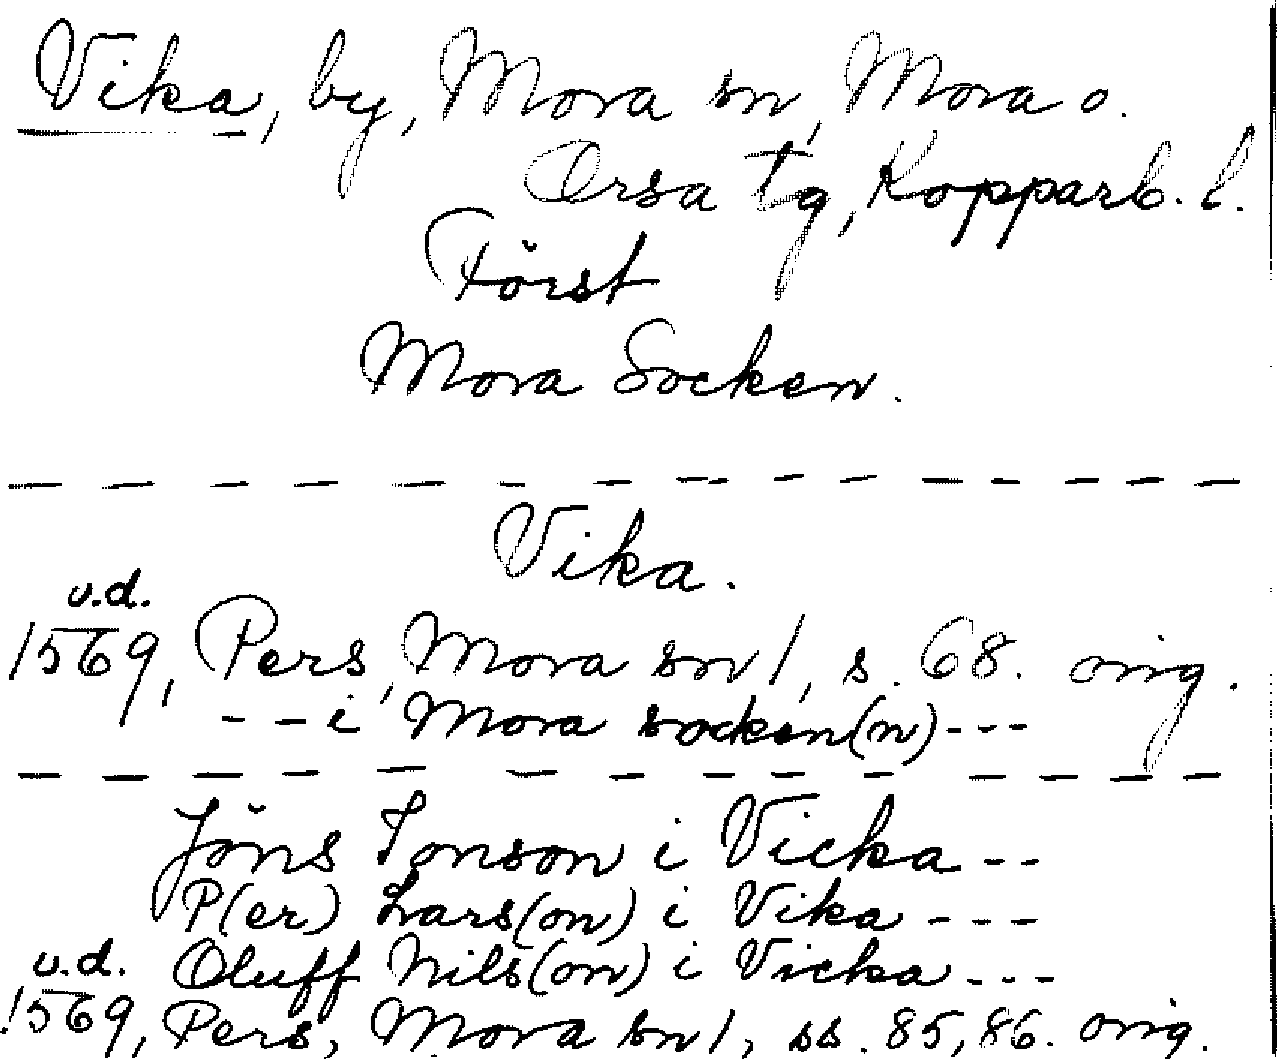 Vika, by, Mora sn, Mora o.
Orsa tg, Kopparb. l.
Först
Mora Socken.
Vika.
u.d.
1569, Pers, Mora sn 1, s. 68. orig.
- - i Mora socken(n) - - -
Jöns Jonson i Vicka - -
P(er) Lars(on) i Vika - - -
u.d. Oluff Nils(on) i Vicka - - -
1569, Pers, Mora sn 1, ss. 85, 86. orig.